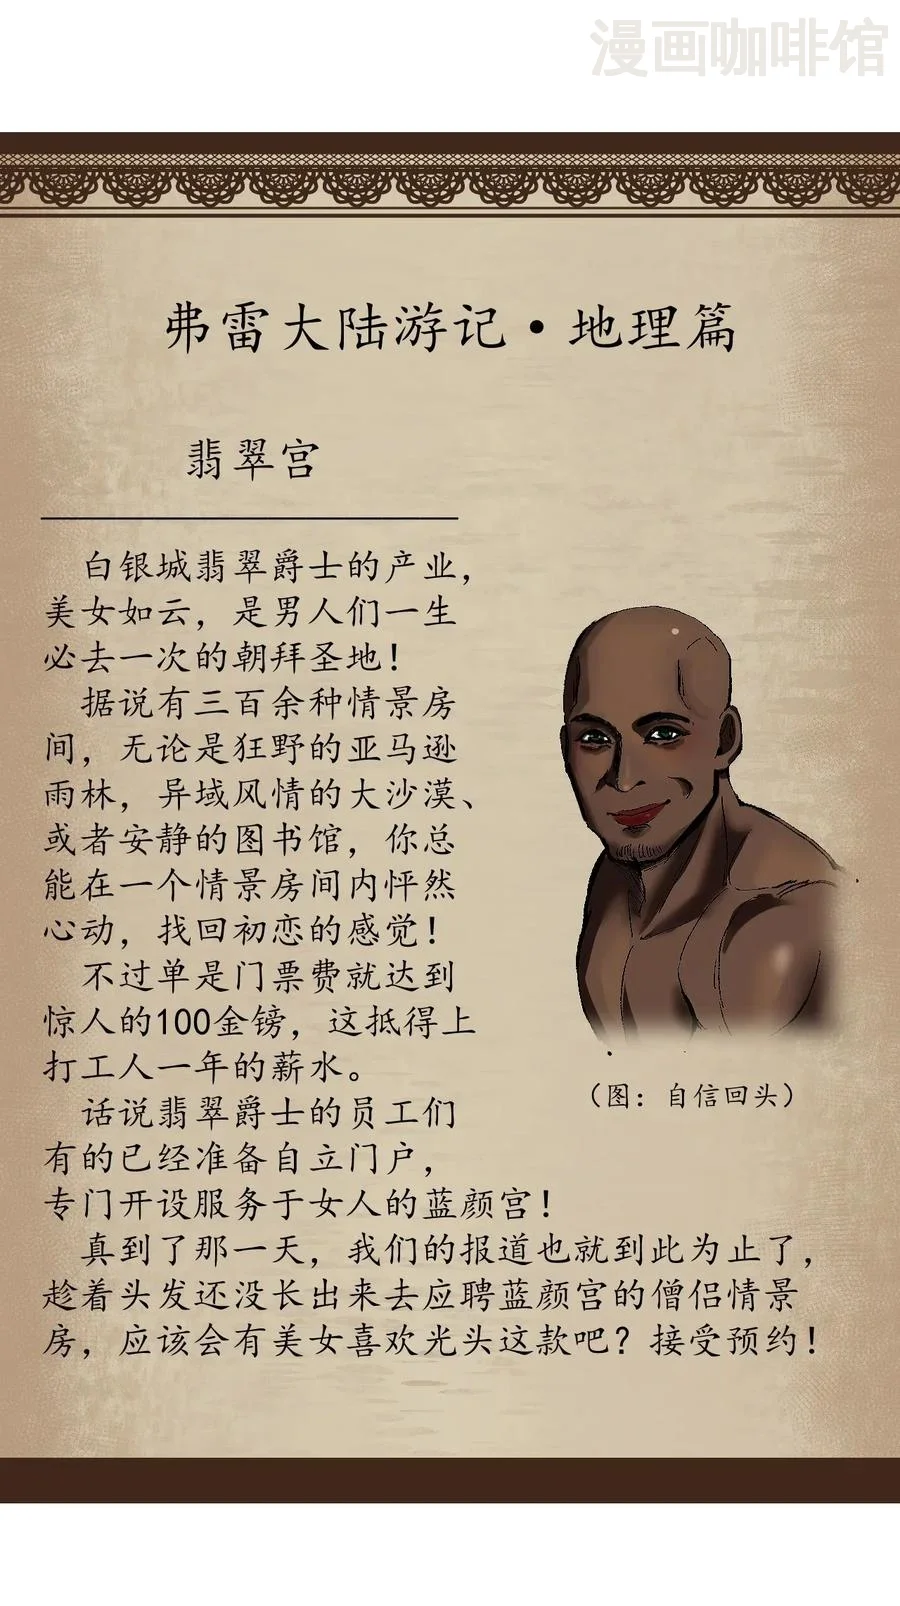 漫画咖啡馆
弗雷大陆游记·地理篇
翡翠宫
白银城翡翠爵士的产业，
美女如云，是男人们一生
必去一次的朝拜圣地！
据说有三百余种情景房
间，无论是狂野的亚马逊
雨林，异域风情的大沙漠、
或者安静的图书馆，你总
能在一个情景房间内怦然
心动，找回初恋的感觉！
不过单是门票费就达到
惊人的100金镑，这抵得上
打工人一年的薪水。
话说翡翠爵士的员工们
有的已经准备自立门户，
专门开设服务于女人的蓝颜宫！
真到了那一天，我们的报道也就到此为止了，
趁着头发还没长出来去应聘蓝颜宫的僧侣情景
房，应该会有美女喜欢光头这款吧？接受预约！
（图：自信回头）